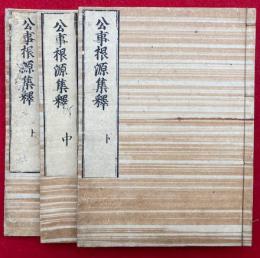 公事根源集釋
公事根源集釋
中
公事根源集釋